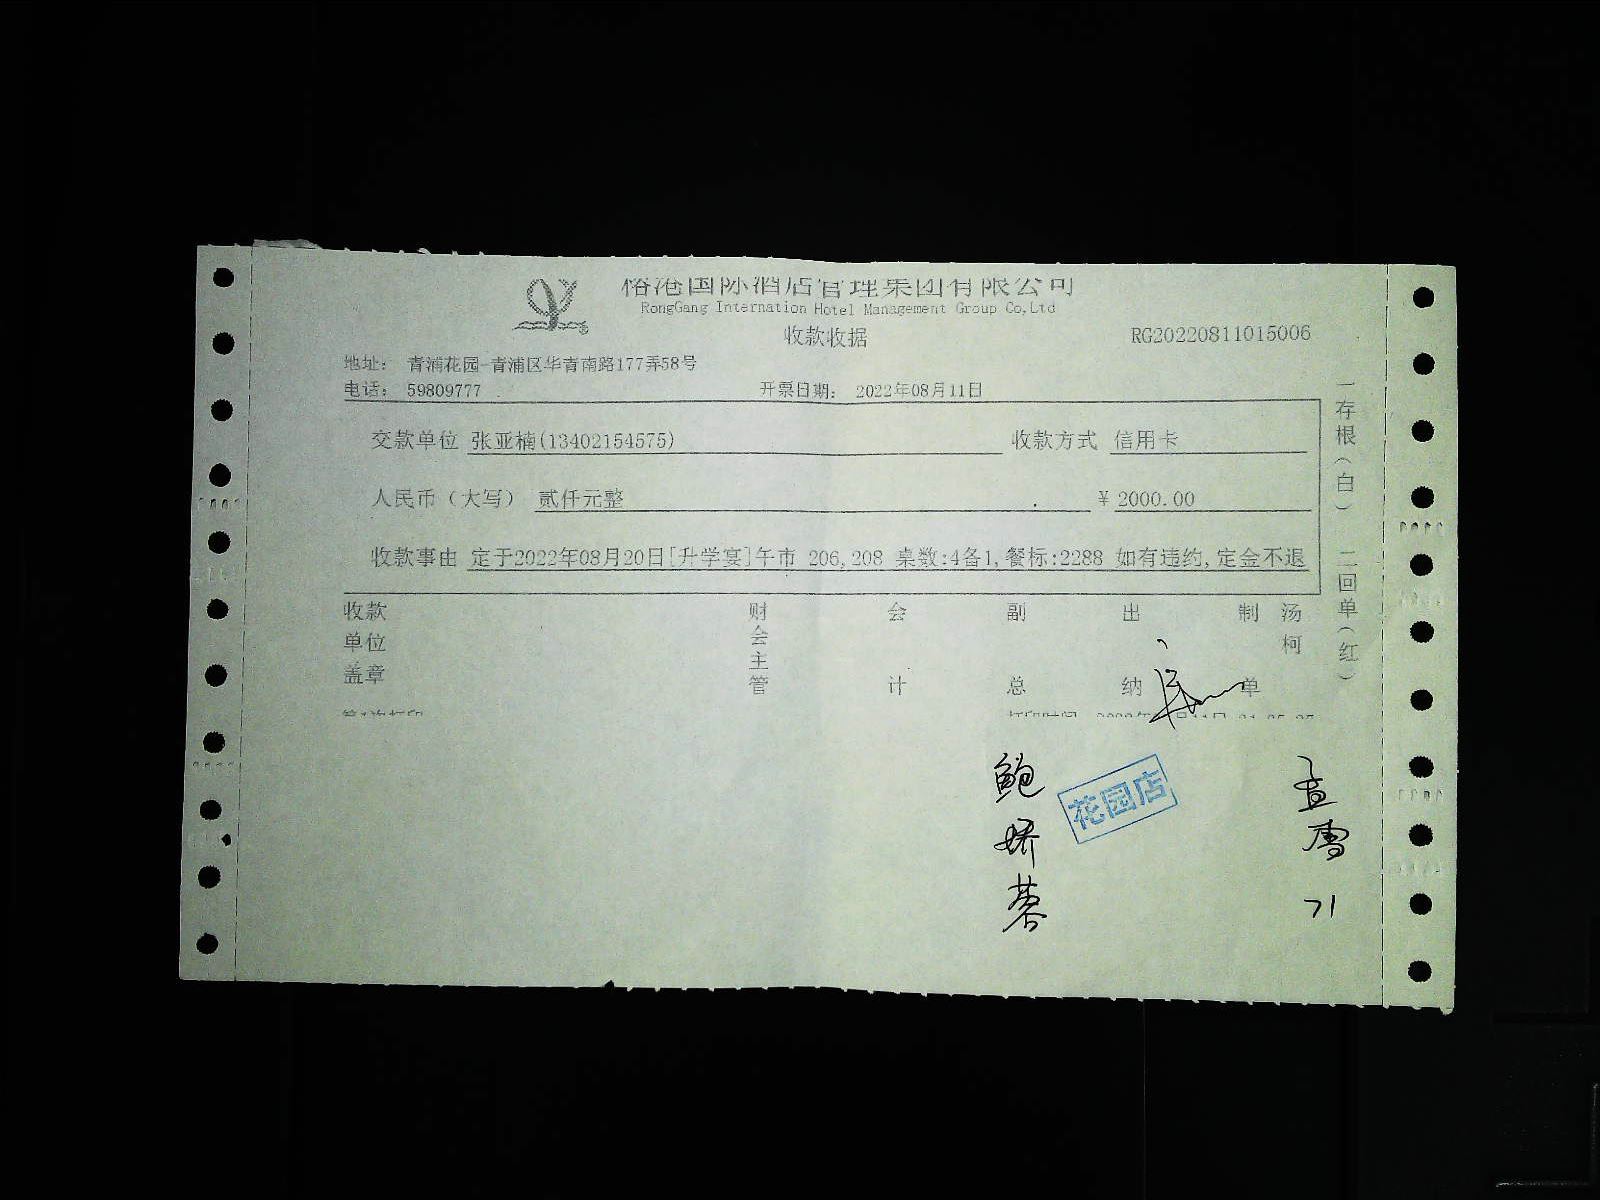 国际酒店管理集团有限公司
RongGang Internation Hotel Management Group Co,Ltd
收款收据
RG20220811015006
地址： 青浦花园-青浦区华青南路177弄58号
电话： 59809777 开票日期： 2022年08月11日
交款单位 张亚楠(13402154575) 收款方式 信用卡
人民币（大写） 贰仟元整 ¥ 2000.00
收款事由 定于2022年08月20日[升学宴]午市 206,208 桌数:4备1,餐标:2288 如有违约,定金不退
收款单位盖章 财会主管 会计 副总 出纳 制单 汤柯
一存根（白） 二回单（红）
鲍娇蓉
花园店